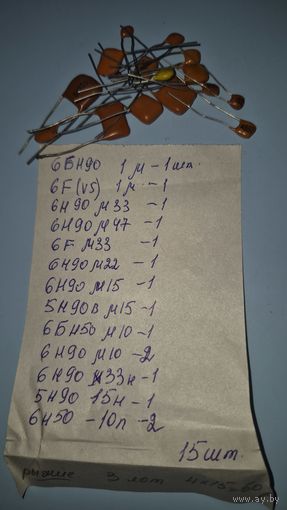 6БН90 1м - 1шт.
6F(V5) 1м - 1
6Н90 м33 - 1
6Н90 м47 - 1
6F м33 - 1
6Н90 м22 - 1
6Н90 м15 - 1
5Н90в м15 - 1
6БН50 м10 - 1
6Н90 м10 - 2
6Н90 33н - 1
5Н90 15н - 1
6Н50 - 10п - 2
15шт.
рыжие - 3 лот 4х15=60
www.ay.by